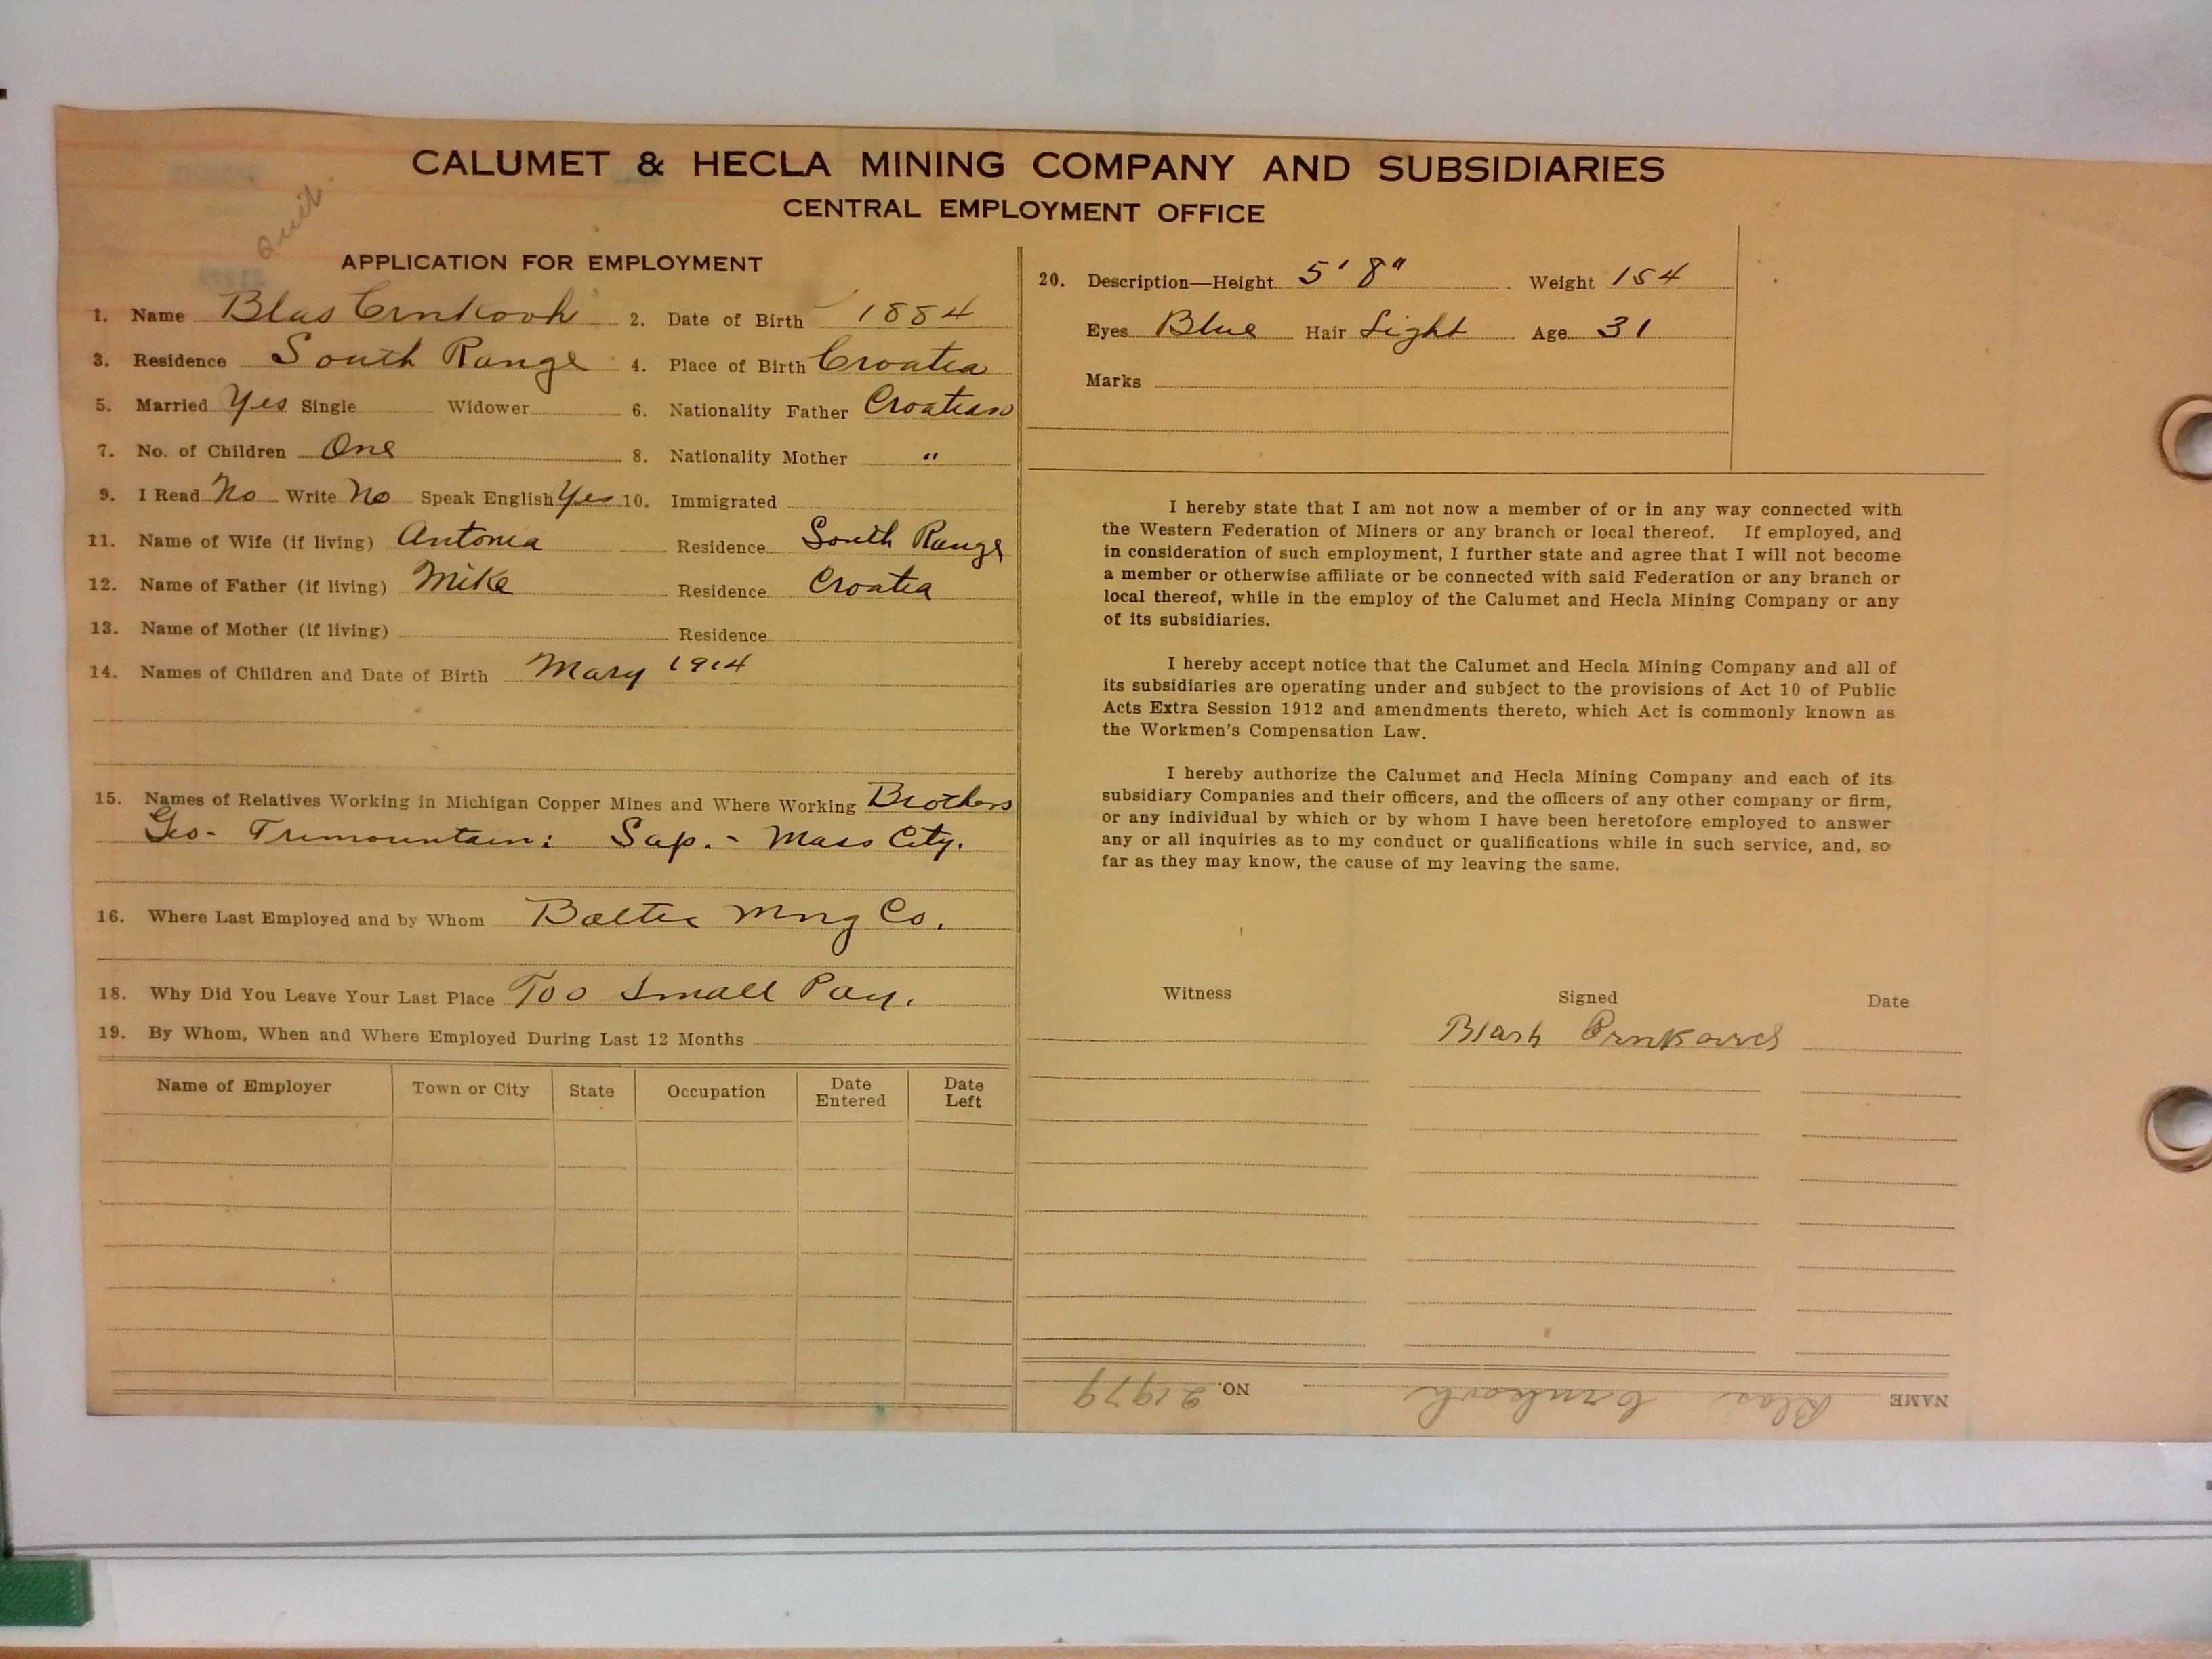 CALUMET & HECLA MINING COMPANY AND SUBSIDIARIES
CENTRAL EMPLOYMENT OFFICE
Quit.
APPLICATION FOR EMPLOYMENT
1. Name Blas Crnkovh 2. Date of Birth 1884
3. Residence South Range 4. Place of Birth Croatia
5. Married Yes Single Widower 6. Nationality Father Croatian
7. No. of Children One 8. Nationality Mother "
9. I Read No Write No Speak English Yes 10. Immigrated
11. Name of Wife (if living) Antonia Residence South Range
12. Name of Father (if living) Mike Residence Croatia
13. Name of Mother (if living) Residence
14. Names of Children and Date of Birth Mary 1914
15. Names of Relatives Working in Michigan Copper Mines and Where Working Brothers
Geo- Trimountain: Sap.- Mass City.
16. Where Last Employed and by Whom Baltic Mng Co.
18. Why Did You Leave Your Last Place Too Small Pay.
19. By Whom, When and Where Employed During Last 12 Months
Name of Employer Town or City State Occupation Date Entered Date Left
20. Description—Height 5' 8" Weight 154
Eyes Blue Hair Light Age 31
Marks
I hereby state that I am not now a member of or in any way connected with
the Western Federation of Miners or any branch or local thereof. If employed, and
in consideration of such employment, I further state and agree that I will not become
a member or otherwise affiliate or be connected with said Federation or any branch or
local thereof, while in the employ of the Calumet and Hecla Mining Company or any
of its subsidiaries.
I hereby accept notice that the Calumet and Hecla Mining Company and all of
its subsidiaries are operating under and subject to the provisions of Act 10 of Public
Acts Extra Session 1912 and amendments thereto, which Act is commonly known as
the Workmen's Compensation Law.
I hereby authorize the Calumet and Hecla Mining Company and each of its
subsidiary Companies and their officers, and the officers of any other company or firm,
or any individual by which or by whom I have been heretofore employed to answer
any or all inquiries as to my conduct or qualifications while in such service, and, so
far as they may know, the cause of my leaving the same.
Witness Signed Date
Blash
NAME Blas NO. 21979